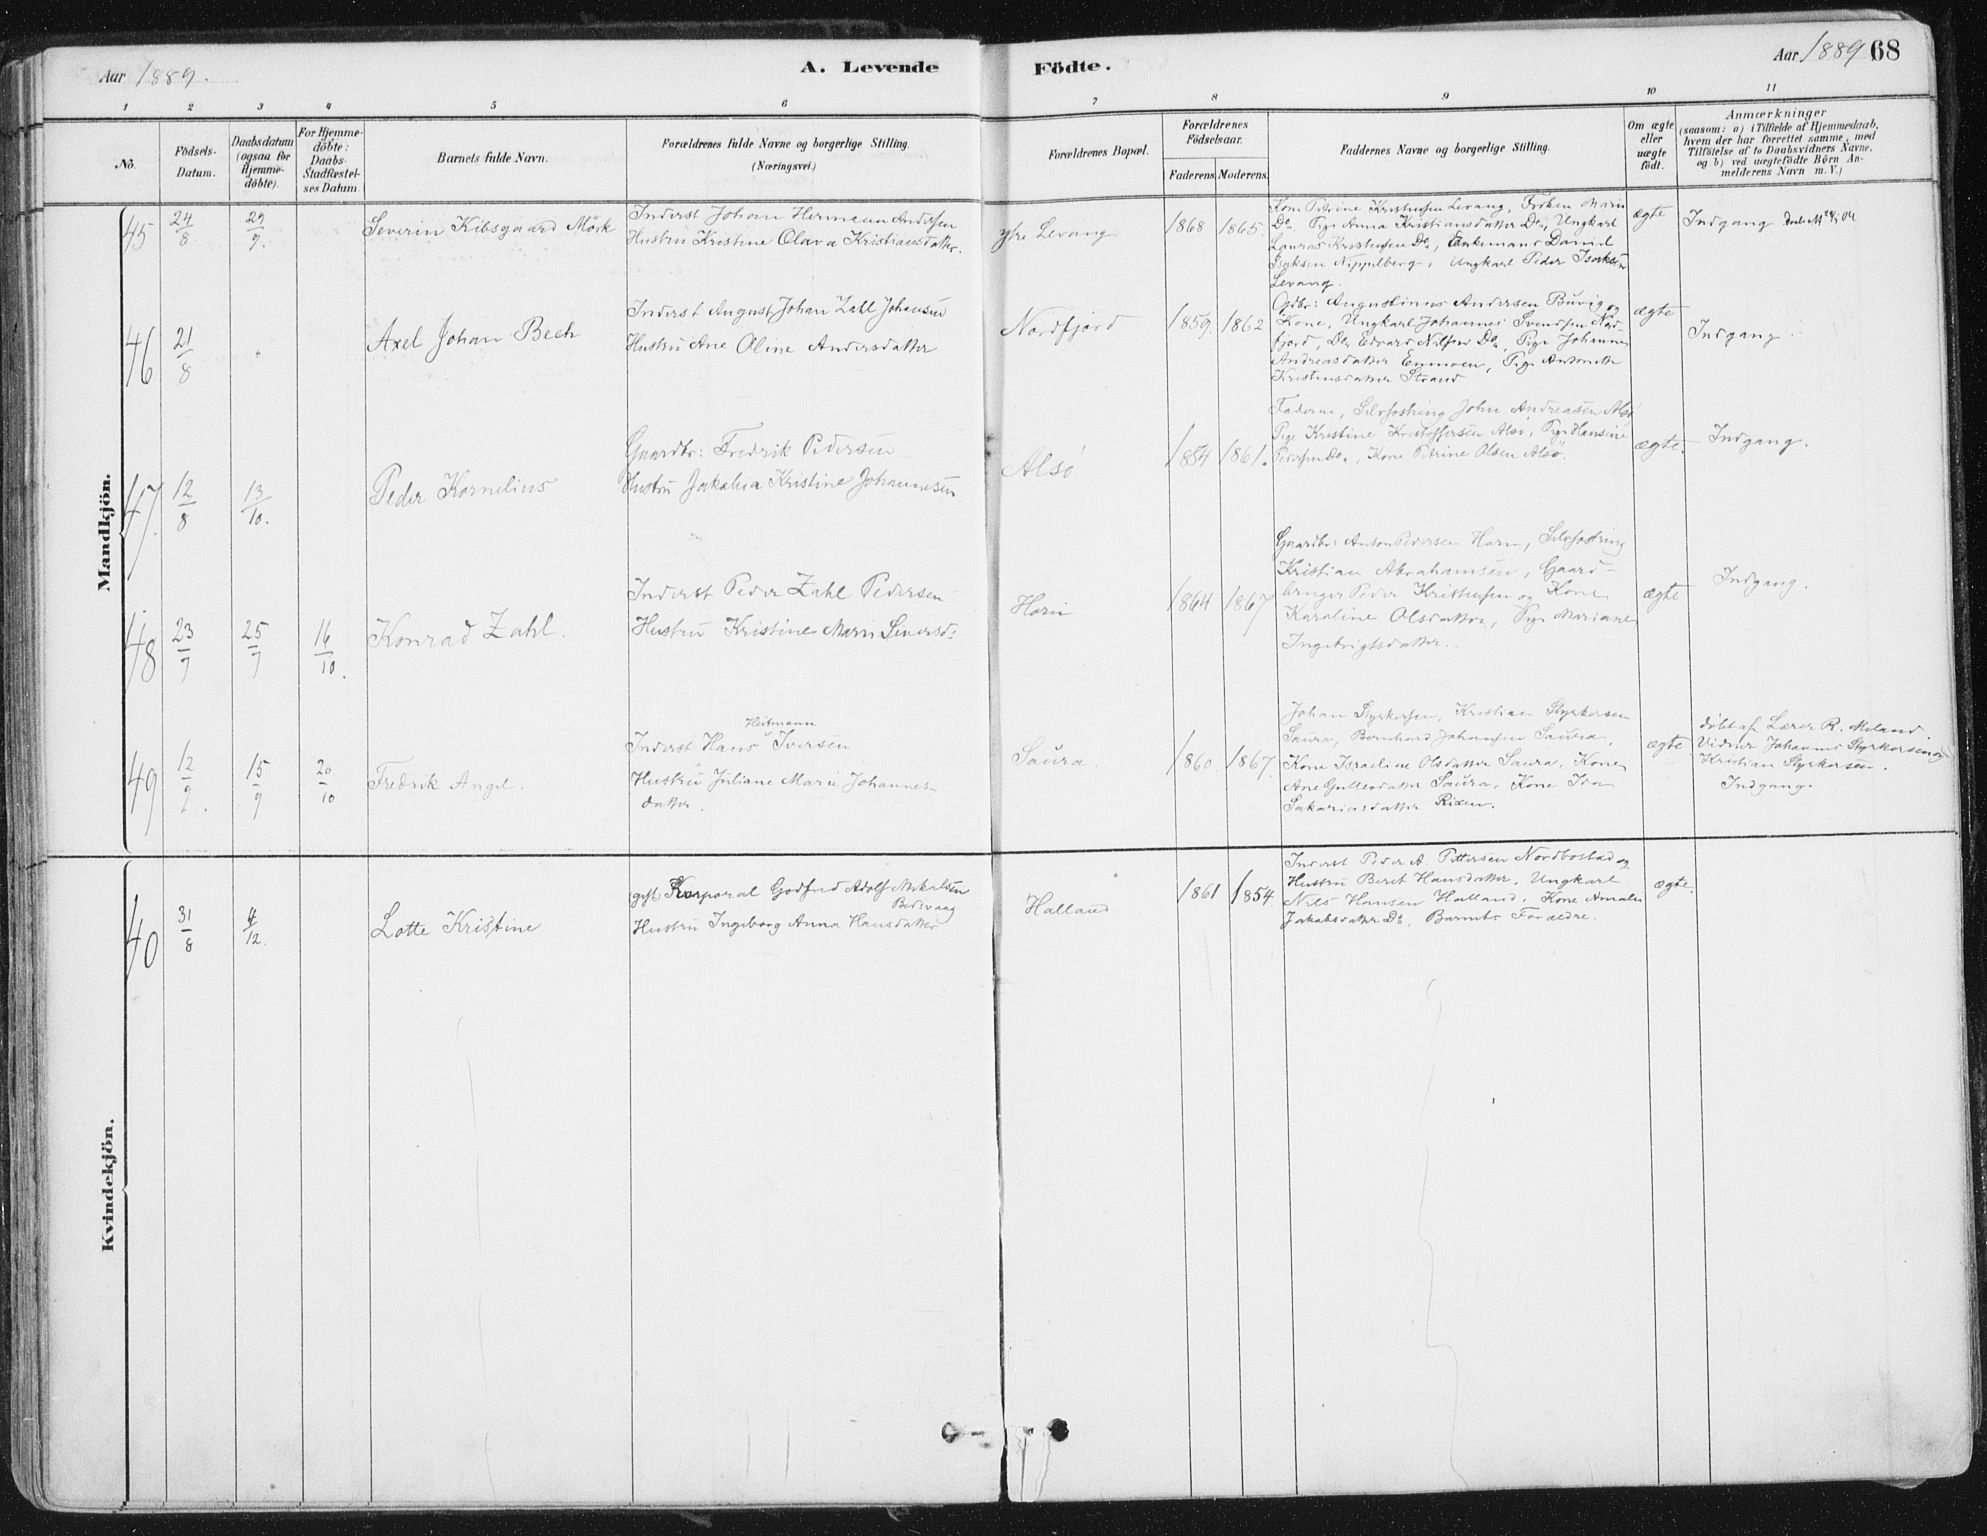 Aar 1889.
A. Levende Födte.
Aar 1889 68
1 2 3 4 5 6 7 8 9 10 11
No.
Födsels-
Datum.
Daabsdatum
(ogsaa for
Hjemme-
döbte).
For Hjemme-
döbte:
Daabs-
Stadfæstel-
ses Datum.
Barnets fulde Navn.
Forældrenes fulde Navne og borgerlige Stilling.
(Næringsvei.)
Forældrenes Bopæl.
Forældrenes
Födselsaar.
Faderens. Moderens.
Faddernes Navne og borgerlige Stilling.
Om ægte
eller
uægte
födt.
Anmærkninger
(saasom: a) i Tilfælde af Hjemmedaab,
hvem der har forrettet samme, med
Tilföielse af to Daabsvidners Navne,
og b) ved uægtefödte Börn An-
melderens Navn m. V.)
Mandkjön.
45
24/8
29/9.
Severin Kibsgaard Mörk
Inderst Johan Hermann Andersen
Hustru Kristine Olava Kristiansdatter.
Ytre Levang
1868
1865.
Kone Petrine Kristensen Levang, Fröken Marie
Do. Pige Anna Kristiansdatter Do., Ungkarl
Lauras Kristensen Do., Enkemand Daniel
Isaksen Nippelberg, Ungkarl Peder Isaksen
Levang.
ægte
Indgang
46
21/8
"
Axel Johan Bech
Inderst August Johan Zahl Johansen
Hustru Ane Oline Andersdatter
Nordfjord
1859.
1862
Gdbr: Augustinus Andersen Buvig og
Kone, Ungkarl Johannes Svendsen Nord-
fjord, Do. Edvard Nilsen Do., Pige Johanna
Andreasdatter Enmoen, Pige Antonette
Kristensdatter Strand
ægte
Indgang
47.
12/8
13/10.
Peder Kornelius
Gaardbr: Fredrik Pedersen
Hustru Jakobea Kristine Johannesen
Alsö
1854
1861.
Faderne, Selvfostring John Andreasen Alsö
Pige Kristine Kristoffersen Alsö, Pige Hansine
Pedersen Do., Kone Petrine Olsen Alsö.
ægte.
Indgang.
48
23/7
25/7
16/10.
Konrad Zahl.
Inderst Peder Zahl Pedersen
Hustru Kristine Marie Seversd:
Horn
1864
1867
Gaardbr: Anton Pedersen Horn, Selvfostring
Kristian Abrahamsen, Gaard-
bruger Peder Kristensen og Kone
Karoline Olsdatter, Pige Mariane
Ingebrigtsdatter.
ægte
Indgang.
49
12/9.
15/9
20/10
Fredrik Angel.
Heitmann
Inderst Hans Iversen
Hustru Juliane Marie Johannes-
datter.
Saura.
1860.
1867.
Johan Styrkersen, Kristian Styrkersen
Saura, Bernhard Johansen Saura,
Kone Israeline Olsdatter Saura, Kone
Ane Gullesdatter Saura, Kone Ida
Sakariasdatter Risen.
ægte
döbt af Lærer R. Meland.
Vidner Johannes Styrkersen og
Kristian Styrkersen.
Indgang.
Kvindekjön.
40
31/8
4/12.
Lotte Kristine
gift Korporal Godfred Adolf Mikalsen
Bodsvaag
Hustru Ingeborg Anna Hansdatter
Halland
1861
1854.
Inderst Peder A. Pettersen Nordbostad og
Hustru Berit Hansdatter, Ungkarl
Nils Hansen Halland, Kone Amalie
Jakobsdatter Do, Barnets Forældre.
ægte.